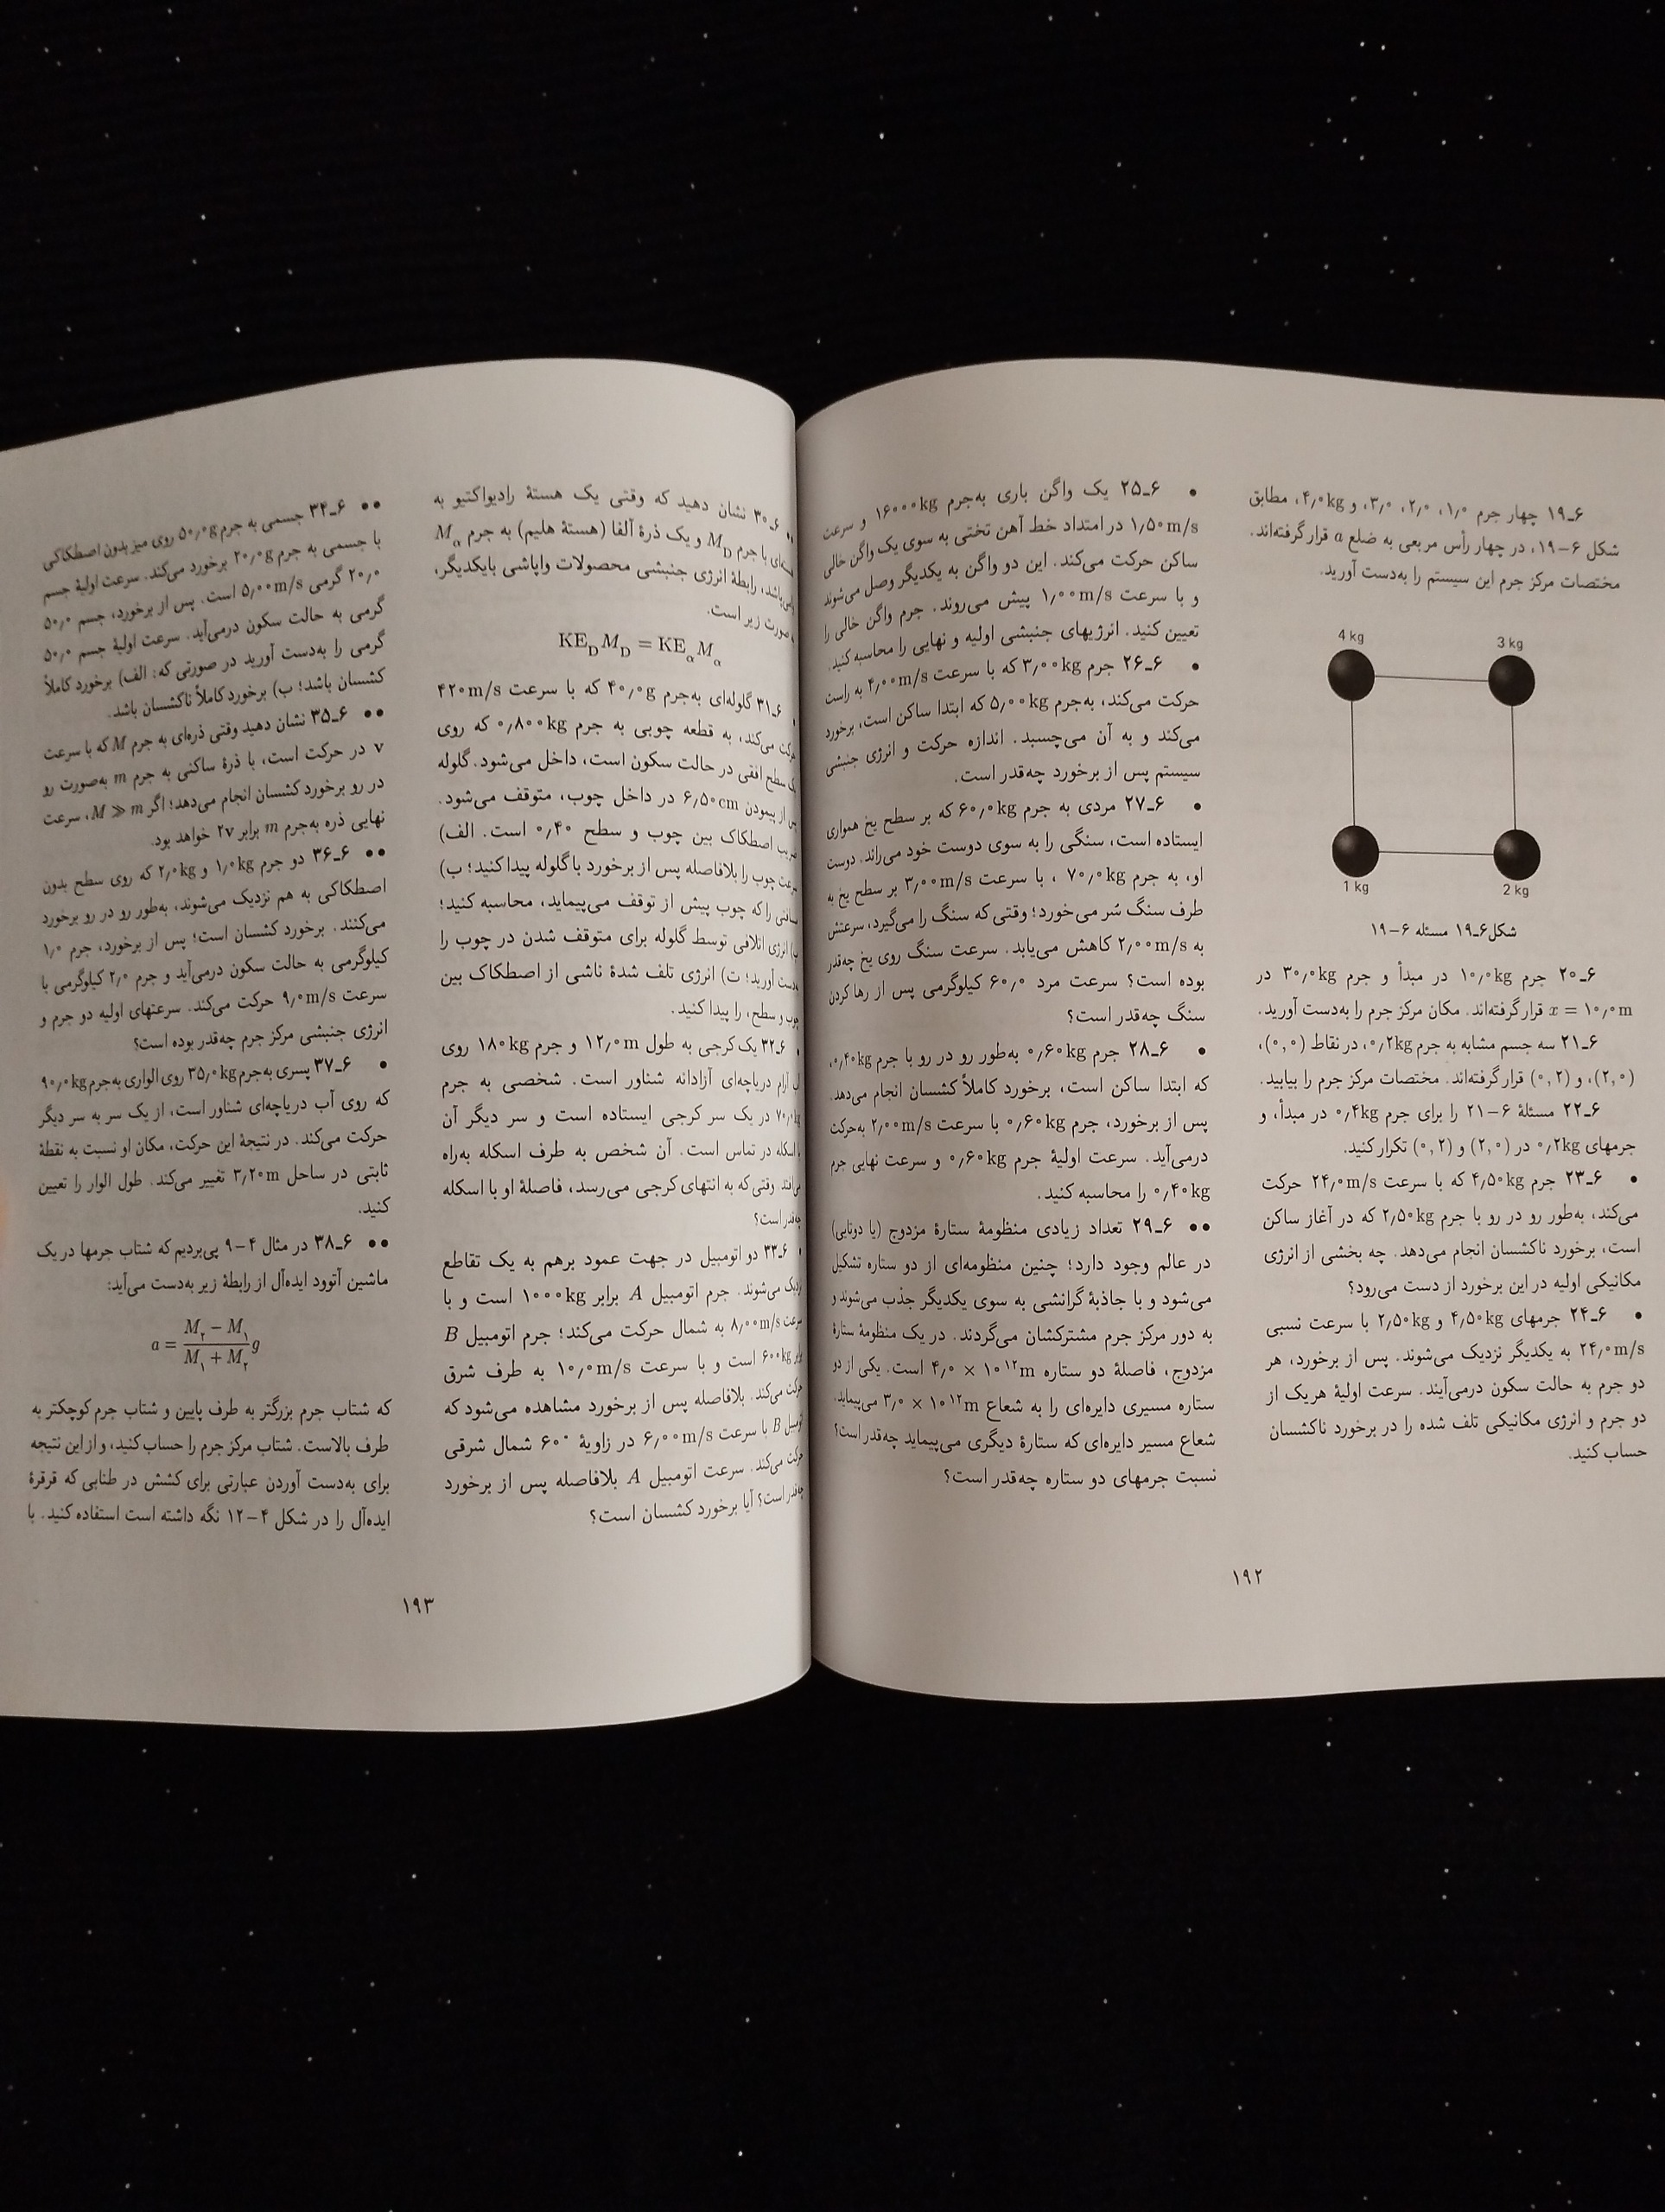 ۶ـ۱۹ چهار جرم ۱٫۰، ۲٫۰، ۳٫۰، و ۴٫۰kg، مطابق
شکل ۶-۱۹، در چهار رأس مربعی به ضلع a قرار گرفته‌اند.
مختصات مرکز جرم این سیستم را به‌دست آورید.
4 kg
3 kg
1 kg
2 kg
شکل۶ـ۱۹ مسئله ۶-۱۹
۶ـ۲۰ جرم ۱۰٫۰kg در مبدأ و جرم ۳۰٫۰kg در
x = ۱۰٫۰m قرار گرفته‌اند. مکان مرکز جرم را به‌دست آورید.
۶ـ۲۱ سه جسم مشابه به جرم ۰٫۲kg، در نقاط (۰,۰)،
(۲,۰)، و (۰,۲) قرار گرفته‌اند. مختصات مرکز جرم را بیابید.
۶ـ۲۲ مسئلهٔ ۶-۲۱ را برای جرم ۰٫۴kg در مبدأ، و
جرمهای ۰٫۲kg در (۲,۰) و (۰,۲) تکرار کنید.
• ۶ـ۲۳ جرم ۴٫۵۰kg که با سرعت ۲۴٫۰m/s حرکت
می‌کند، به‌طور رو در رو با جرم ۲٫۵۰kg که در آغاز ساکن
است، برخورد ناکشسان انجام می‌دهد. چه بخشی از انرژی
مکانیکی اولیه در این برخورد از دست می‌رود؟
• ۶ـ۲۴ جرمهای ۴٫۵۰kg و ۲٫۵۰kg با سرعت نسبی
۲۴٫۰m/s به یکدیگر نزدیک می‌شوند. پس از برخورد، هر
دو جرم به حالت سکون درمی‌آیند. سرعت اولیهٔ هریک از
دو جرم و انرژی مکانیکی تلف شده را در برخورد ناکشسان
حساب کنید.
• ۶ـ۲۵ یک واگن باری به‌جرم ۱۶۰۰۰kg و سرعت
۱٫۵۰m/s در امتداد خط آهن تختی به سوی یک واگن خالی
ساکن حرکت می‌کند. این دو واگن به یکدیگر وصل می‌شوند
و با سرعت ۱٫۰۰m/s پیش می‌روند. جرم واگن خالی را
تعیین کنید. انرژیهای جنبشی اولیه و نهایی را محاسبه کنید.
• ۶ـ۲۶ جرم ۳٫۰۰kg که با سرعت ۴٫۰۰m/s به راست
حرکت می‌کند، به‌جرم ۵٫۰۰kg که ابتدا ساکن است، برخورد
می‌کند و به آن می‌چسبد. اندازه حرکت و انرژی جنبشی
سیستم پس از برخورد چه‌قدر است.
• ۶ـ۲۷ مردی به جرم ۶۰٫۰kg که بر سطح یخ همواری
ایستاده است، سنگی را به سوی دوست خود می‌راند. دوست
او، به جرم ۷۰٫۰kg ، با سرعت ۳٫۰۰m/s بر سطح یخ به
طرف سنگ سُر می‌خورد؛ وقتی که سنگ را می‌گیرد، سرعتش
به ۲٫۰۰m/s کاهش می‌یابد. سرعت سنگ روی یخ چه‌قدر
بوده است؟ سرعت مرد ۶۰٫۰ کیلوگرمی پس از رها کردن
سنگ چه‌قدر است؟
• ۶ـ۲۸ جرم ۰٫۶۰kg به‌طور رو در رو با جرم ۰٫۴۰kg،
که ابتدا ساکن است، برخورد کاملاً کشسان انجام می‌دهد.
پس از برخورد، جرم ۰٫۶۰kg با سرعت ۲٫۰۰m/s به‌حرکت
درمی‌آید. سرعت اولیهٔ جرم ۰٫۶۰kg و سرعت نهایی جرم
۰٫۴۰kg را محاسبه کنید.
•• ۶ـ۲۹ تعداد زیادی منظومهٔ ستارهٔ مزدوج (یا دوتایی)
در عالم وجود دارد؛ چنین منظومه‌ای از دو ستاره تشکیل
می‌شود و با جاذبهٔ گرانشی به سوی یکدیگر جذب می‌شوند و
به دور مرکز جرم مشترکشان می‌گردند. در یک منظومهٔ ستارهٔ
مزدوج، فاصلهٔ دو ستاره ۴٫۰ × ۱۰^۱۲m است. یکی از دو
ستاره مسیری دایره‌ای را به شعاع ۳٫۰ × ۱۰^۱۲m می‌پیماید.
شعاع مسیر دایره‌ای که ستارهٔ دیگری می‌پیماید چه‌قدر است؟
نسبت جرمهای دو ستاره چه‌قدر است؟
۱۹۲
۶ـ۳۰ نشان دهید که وقتی یک هستهٔ رادیواکتیو به
با جرم M_D و یک ذرهٔ آلفا (هستهٔ هلیم) به جرم M_α
رابطهٔ انرژی جنبشی محصولات واپاشی بایکدیگر،
صورت زیر است.
KE_D M_D = KE_α M_α
۶ـ۳۱ گلوله‌ای به‌جرم ۴۰٫۰g که با سرعت ۴۲۰m/s
می‌کند، به قطعه چوبی به جرم ۰٫۸۰۰kg که روی
سطح افقی در حالت سکون است، داخل می‌شود. گلوله
از پیمودن ۶٫۵۰cm در داخل چوب، متوقف می‌شود.
ضریب اصطکاک بین چوب و سطح ۰٫۴۰ است. الف)
سرعت چوب را بلافاصله پس از برخورد باگلوله پیدا کنید؛ ب)
را که چوب پیش از توقف می‌پیماید، محاسبه کنید؛
انرژی اتلافی توسط گلوله برای متوقف شدن در چوب را
آورید؛ ت) انرژی تلف شدهٔ ناشی از اصطکاک بین
چوب و سطح، را پیدا کنید.
۶ـ۳۲ یک کرجی به طول ۱۲٫۰m و جرم ۱۸۰kg روی
آرام دریاچه‌ای آزادانه شناور است. شخصی به جرم
۷۰٫۰kg در یک سر کرجی ایستاده است و سر دیگر آن
اسکله در تماس است. آن شخص به طرف اسکله به‌راه
وقتی که به انتهای کرجی می‌رسد، فاصلهٔ او با اسکله
چه‌قدر است؟
۶ـ۳۳ دو اتومبیل در جهت عمود برهم به یک تقاطع
نزدیک می‌شوند. جرم اتومبیل A برابر ۱۰۰۰kg است و با
سرعت ۸٫۰۰m/s به شمال حرکت می‌کند؛ جرم اتومبیل B
۶۰۰kg است و با سرعت ۱۰٫۰m/s به طرف شرق
حرکت می‌کند. بلافاصله پس از برخورد مشاهده می‌شود که
اتومبیل B با سرعت ۶٫۰۰m/s در زاویهٔ ۶۰° شمال شرقی
حرکت می‌کند. سرعت اتومبیل A بلافاصله پس از برخورد
چه‌قدر است؟ آیا برخورد کشسان است؟
•• ۶ـ۳۴ جسمی به جرم ۵۰٫۰g روی میز بدون اصطکاکی
با جسمی به جرم ۲۰٫۰g برخورد می‌کند. سرعت اولیهٔ جسم
۲۰٫۰ گرمی ۵٫۰۰m/s است. پس از برخورد، جسم ۵۰٫۰
گرمی به حالت سکون درمی‌آید. سرعت اولیهٔ جسم ۵۰٫۰
گرمی را به‌دست آورید در صورتی که: الف) برخورد کاملاً
کشسان باشد؛ ب) برخورد کاملاً ناکشسان باشد.
•• ۶ـ۳۵ نشان دهید وقتی ذره‌ای به جرم M که با سرعت
v در حرکت است، با ذرهٔ ساکنی به جرم m به‌صورت رو
در رو برخورد کشسان انجام می‌دهد؛ اگر M ≫ m، سرعت
نهایی ذره به‌جرم m برابر ۲v خواهد بود.
•• ۶ـ۳۶ دو جرم ۱٫۰kg و ۲٫۰kg که روی سطح بدون
اصطکاکی به هم نزدیک می‌شوند، به‌طور رو در رو برخورد
می‌کنند. برخورد کشسان است؛ پس از برخورد، جرم ۱٫۰
کیلوگرمی به حالت سکون درمی‌آید و جرم ۲٫۰ کیلوگرمی با
سرعت ۹٫۰m/s حرکت می‌کند. سرعتهای اولیه دو جرم و
انرژی جنبشی مرکز جرم چه‌قدر بوده است؟
• ۶ـ۳۷ پسری به‌جرم ۳۵٫۰kg روی الواری به‌جرم ۹۰٫۰kg
که روی آب دریاچه‌ای شناور است، از یک سر به سر دیگر
حرکت می‌کند. در نتیجهٔ این حرکت، مکان او نسبت به نقطهٔ
ثابتی در ساحل ۳٫۲۰m تغییر می‌کند. طول الوار را تعیین
کنید.
•• ۶ـ۳۸ در مثال ۴-۹ پی‌بردیم که شتاب جرمها در یک
ماشین آتوود ایده‌آل از رابطهٔ زیر به‌دست می‌آید:
a = (M_۲ − M_۱)/(M_۱ + M_۲) g
که شتاب جرم بزرگتر به طرف پایین و شتاب جرم کوچکتر به
طرف بالاست. شتاب مرکز جرم را حساب کنید، و از این نتیجه
برای به‌دست آوردن عبارتی برای کشش در طنابی که قرقرهٔ
ایده‌آل را در شکل ۴-۱۲ نگه داشته است استفاده کنید. با
۱۹۳